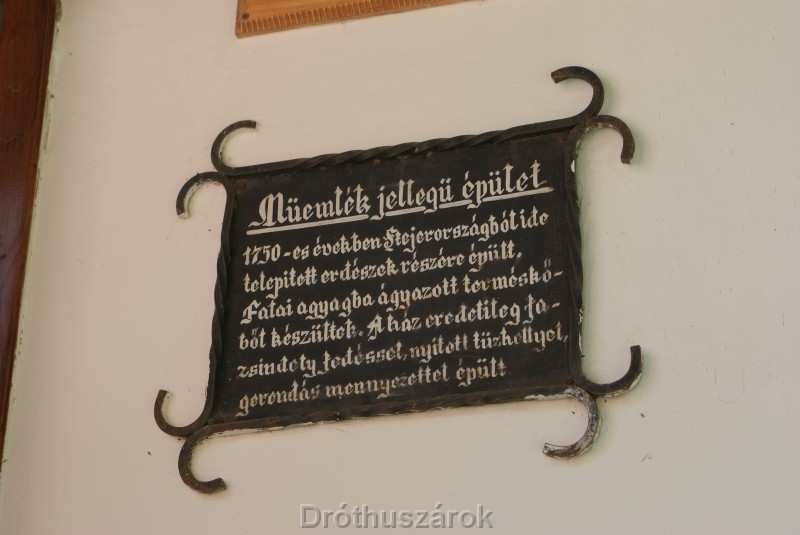 Müemlék jellegü épület
1750-es években Stejerországból ide
telepitett erdészek részére épült.
Falai agyagba ágyazott terméskő-
ből készültek. A ház eredetileg fa-
zsindely fedéssel, nyitott tüzhellyel,
gerendás mennyezettel épült
Dróthuszárok